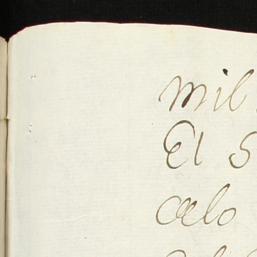 mil
El S
celo